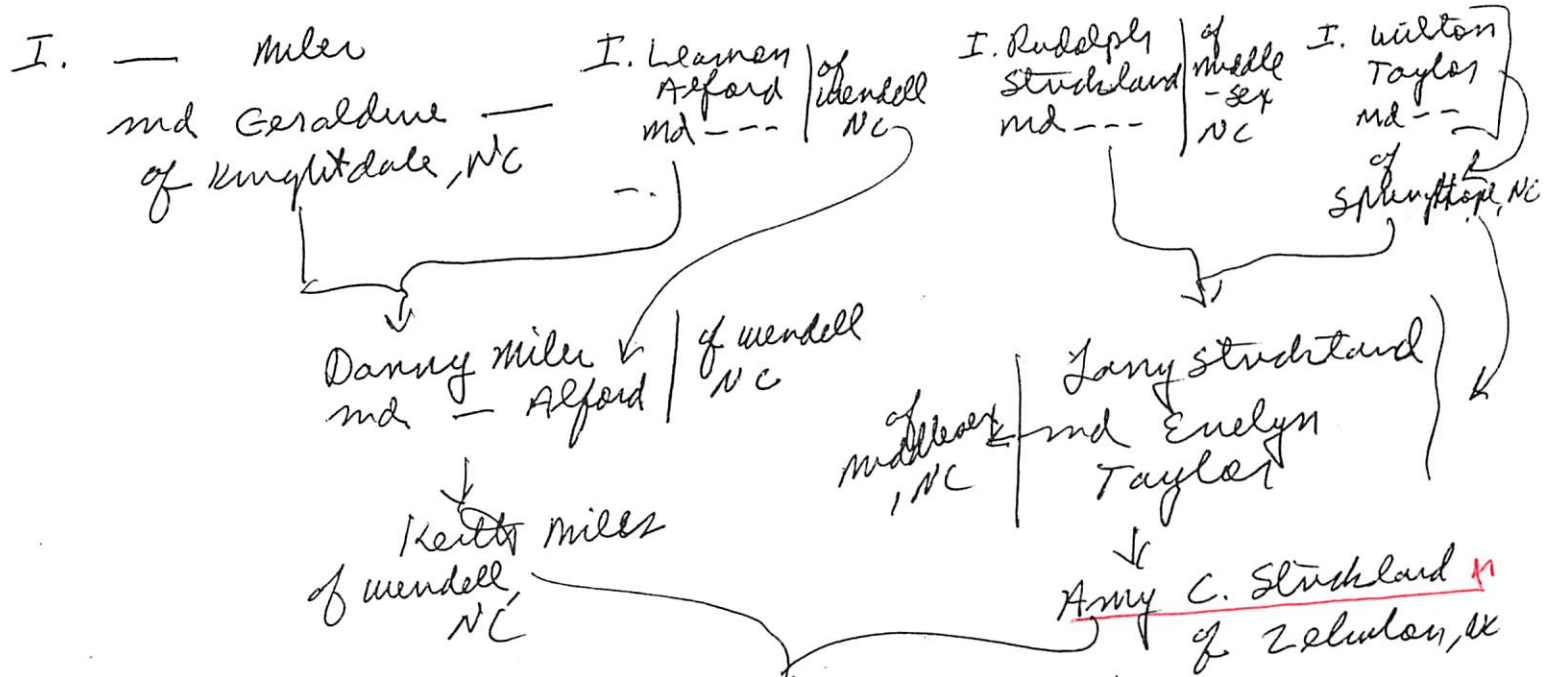 I. — Miles
md Geraldine —
of Knightdale, NC
I. Leamon
Alford
md - - -
of
Wendell
NC
I. Rudolph
Strickland
md - - -
of
middle
- sex
NC
I. Wilton
Taylor
md - -
of
Springhope, NC
Danny Miles
md — Alford
of Wendell
NC
Larry Strickland
md Evelyn
Taylor
of
middlesex
, NC
Keith Miles
of Wendell,
NC
Amy C. Strickland
of Zebulon, NC